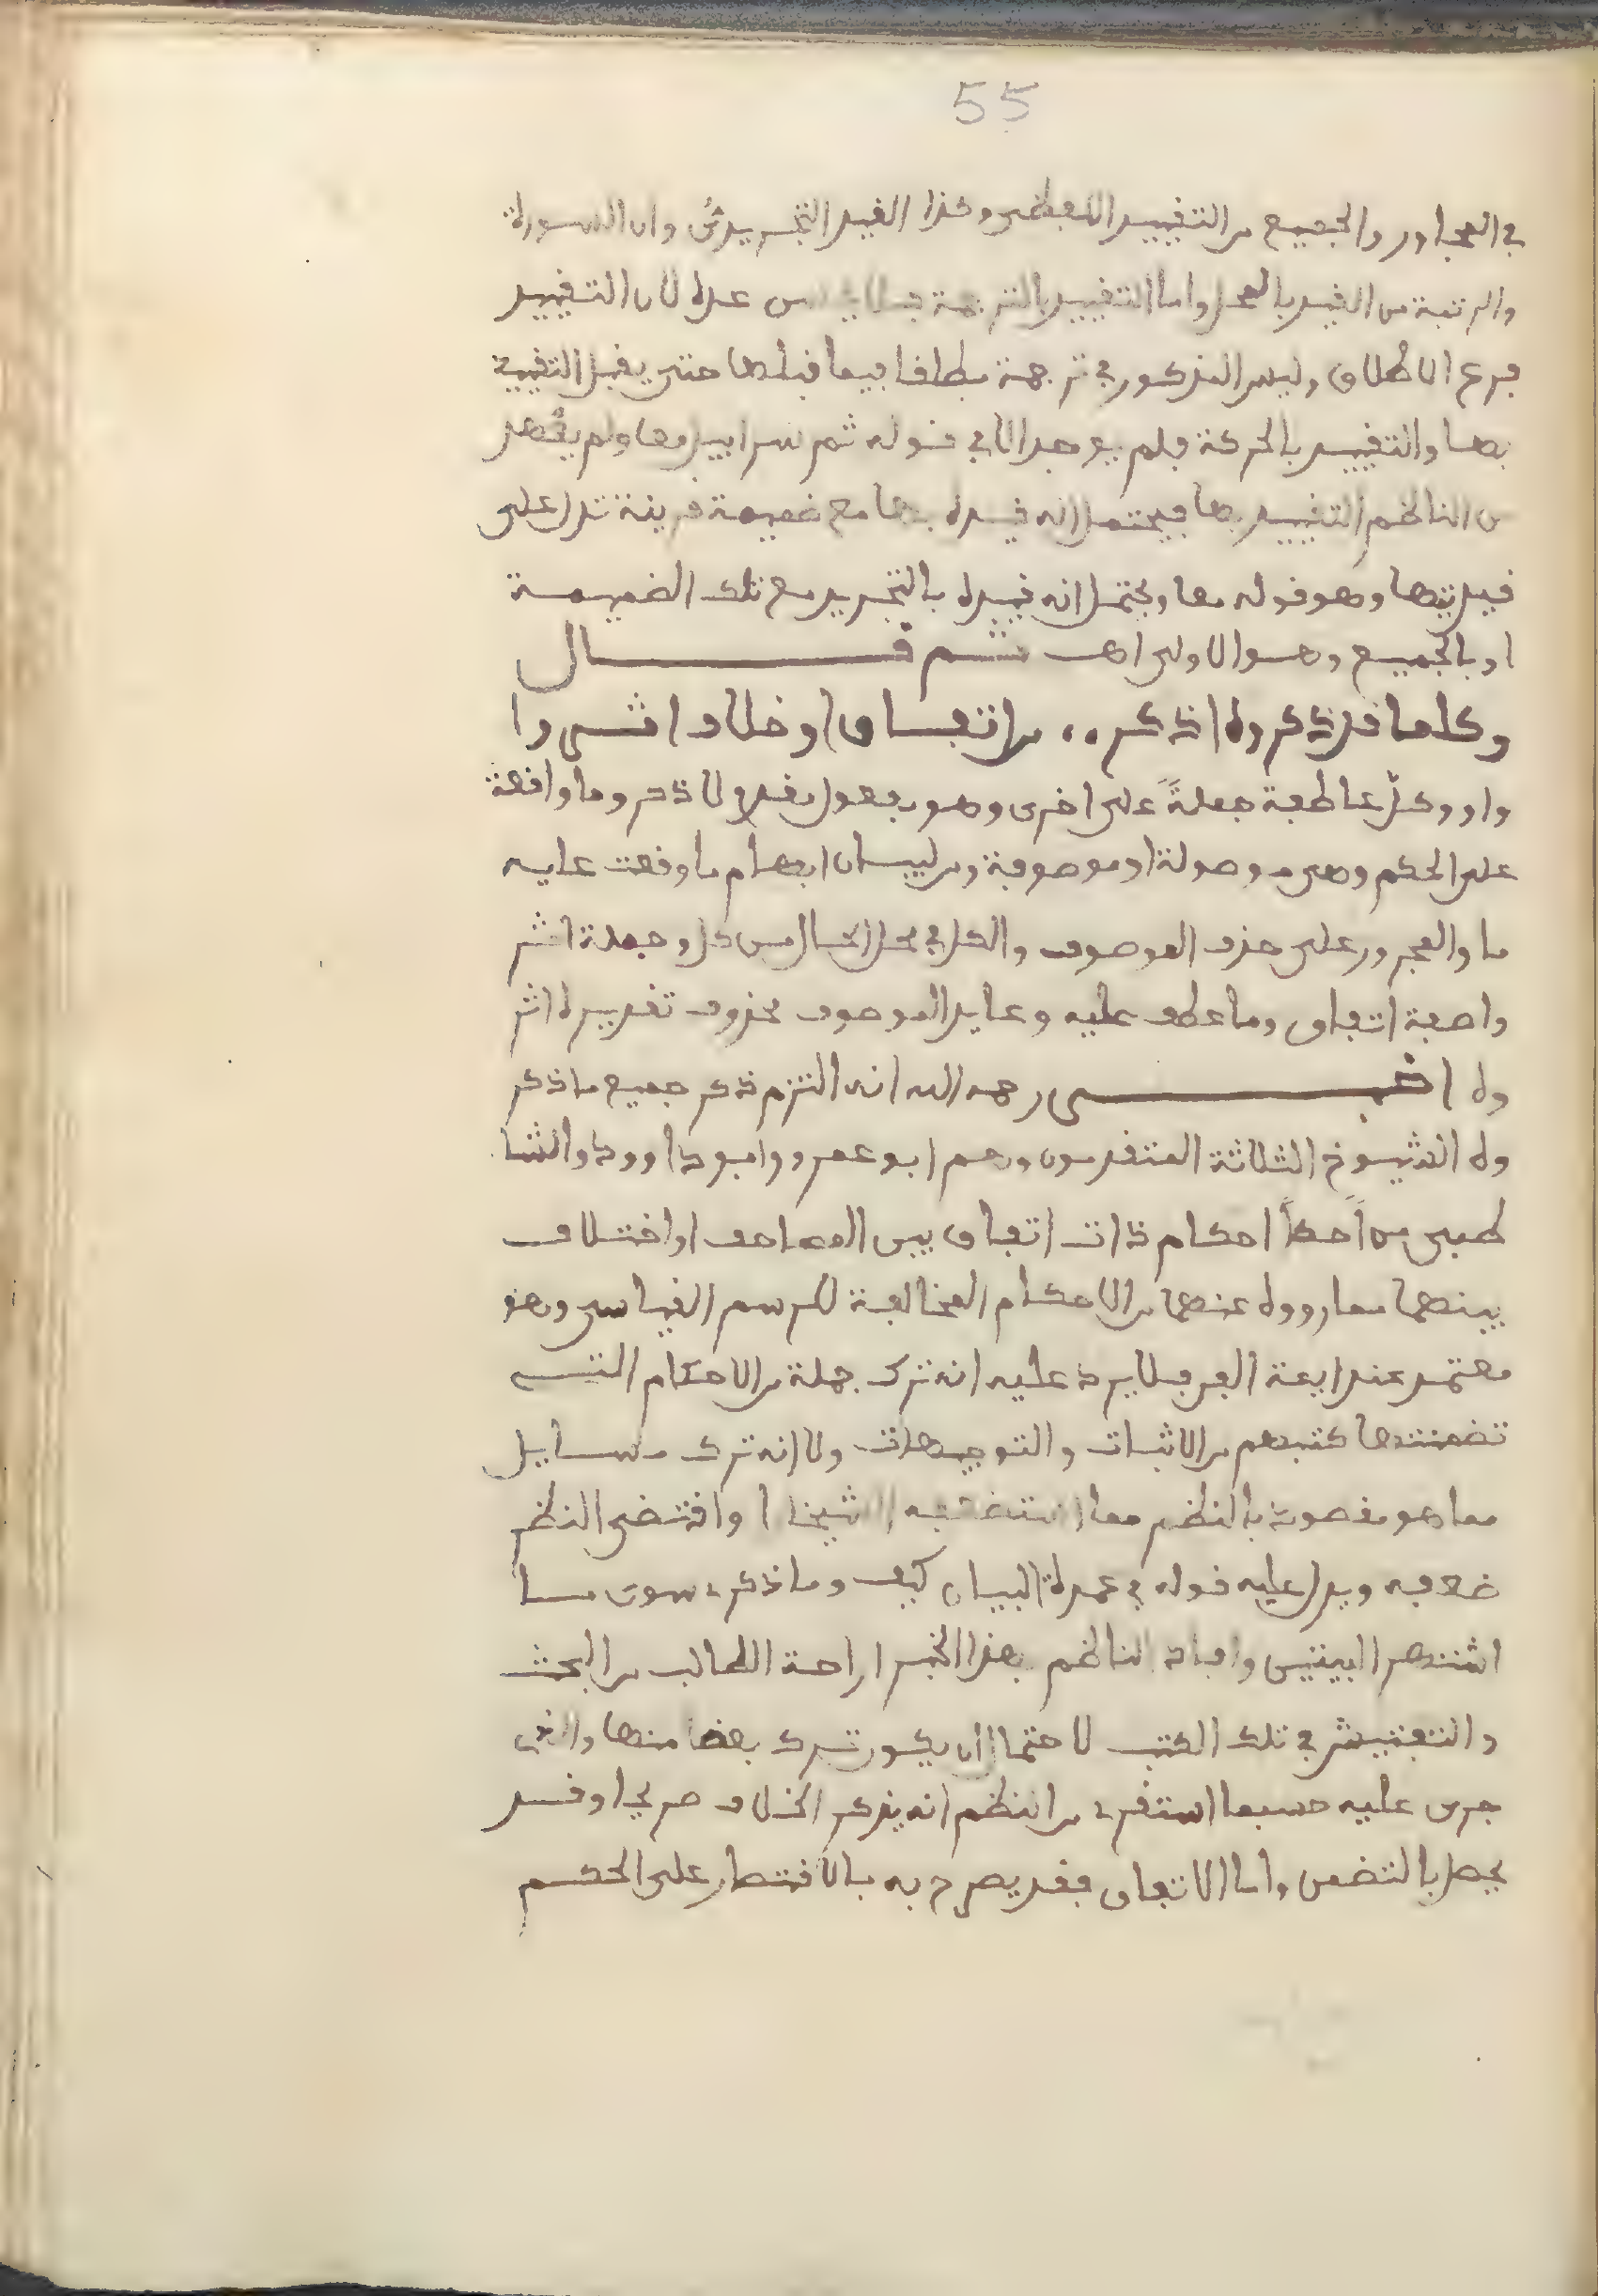 55
في المجاور والجميع من التقييد اللفظي وكذا القيد التجريدي وان السورة
والرتبة من القيد بالمحل واما التقييد بالترجمة فلا عده لان التقييد
فرع الاطلاق وليس المذكور في ترجمة مطلقا فيما قبلها حتى يقبل التقييد
بها والتقييد بالحركة فلم يوجد الا في قوله ثم سرابيل معا ولم يقصد
من الناظم التقييد بها فيحتمل انه قيده بها مع ضميمة قرينة تدل على
قيديتها وهو قوله معا ويحتمل انه قيده بالتجريد مع تلك الضميمة
او بالجميع وهو الاولى اهـ ثم قال
وكلما قد ذكروه اذكر ،، من اتفاق او خلاف اثروا
واو وكل عاطفة جملةً على اخرى وهو مفعول مقدم لاذكر وما واقعة
على الحكم وهي موصولة او موصوفة ومن لبيان ابهام ما وقعت عليه
ما والمجرور على حذف الموصوف والكل في محل الحال من كل وجملة اثر
وا صفة اتفاق وما عطف عليه وعايد الموصوف محذوف تقديره اثر
وه اخبــى رحمه الله انه التزم ذكر جميع ما ذكر
وه الشيوخ الثلاثة المتقدمون وهم ابو عمرو وابو داوود والشا
طبي من احكام ذات اتفاق بين المصاحف او اختلاف
بينهما مما رووه عنهما من الاحكام المخالفة للرسم القياسي وهو
معتمد عند ايمة الفن فلا يرد عليه انه ترك جملة من الاحكام التي
تضمنتها كتبهم من الاثبات والتوجيهات ولا انه ترك مسايل
مما هو مقصود بالنظم مما الشيخان واقتضى النظم
ضعفه ويدل عليه قوله في عمدة البيان كيف وما ذكرت سوى ما
اشتهر البيتين وافاد الناظم بهذا الخبر اراحة الطالب من البحث
والتفتيش في تلك الكتب لاحتمال ان يكون ترك بعضا منها والذي
جرى عليه حسبما استقرت من النظم انه يذكر الخلاف صريحا وقد
يحصل بالتضمن واما الاتفاق فقد يصرح به بالاقتصار على الحكم